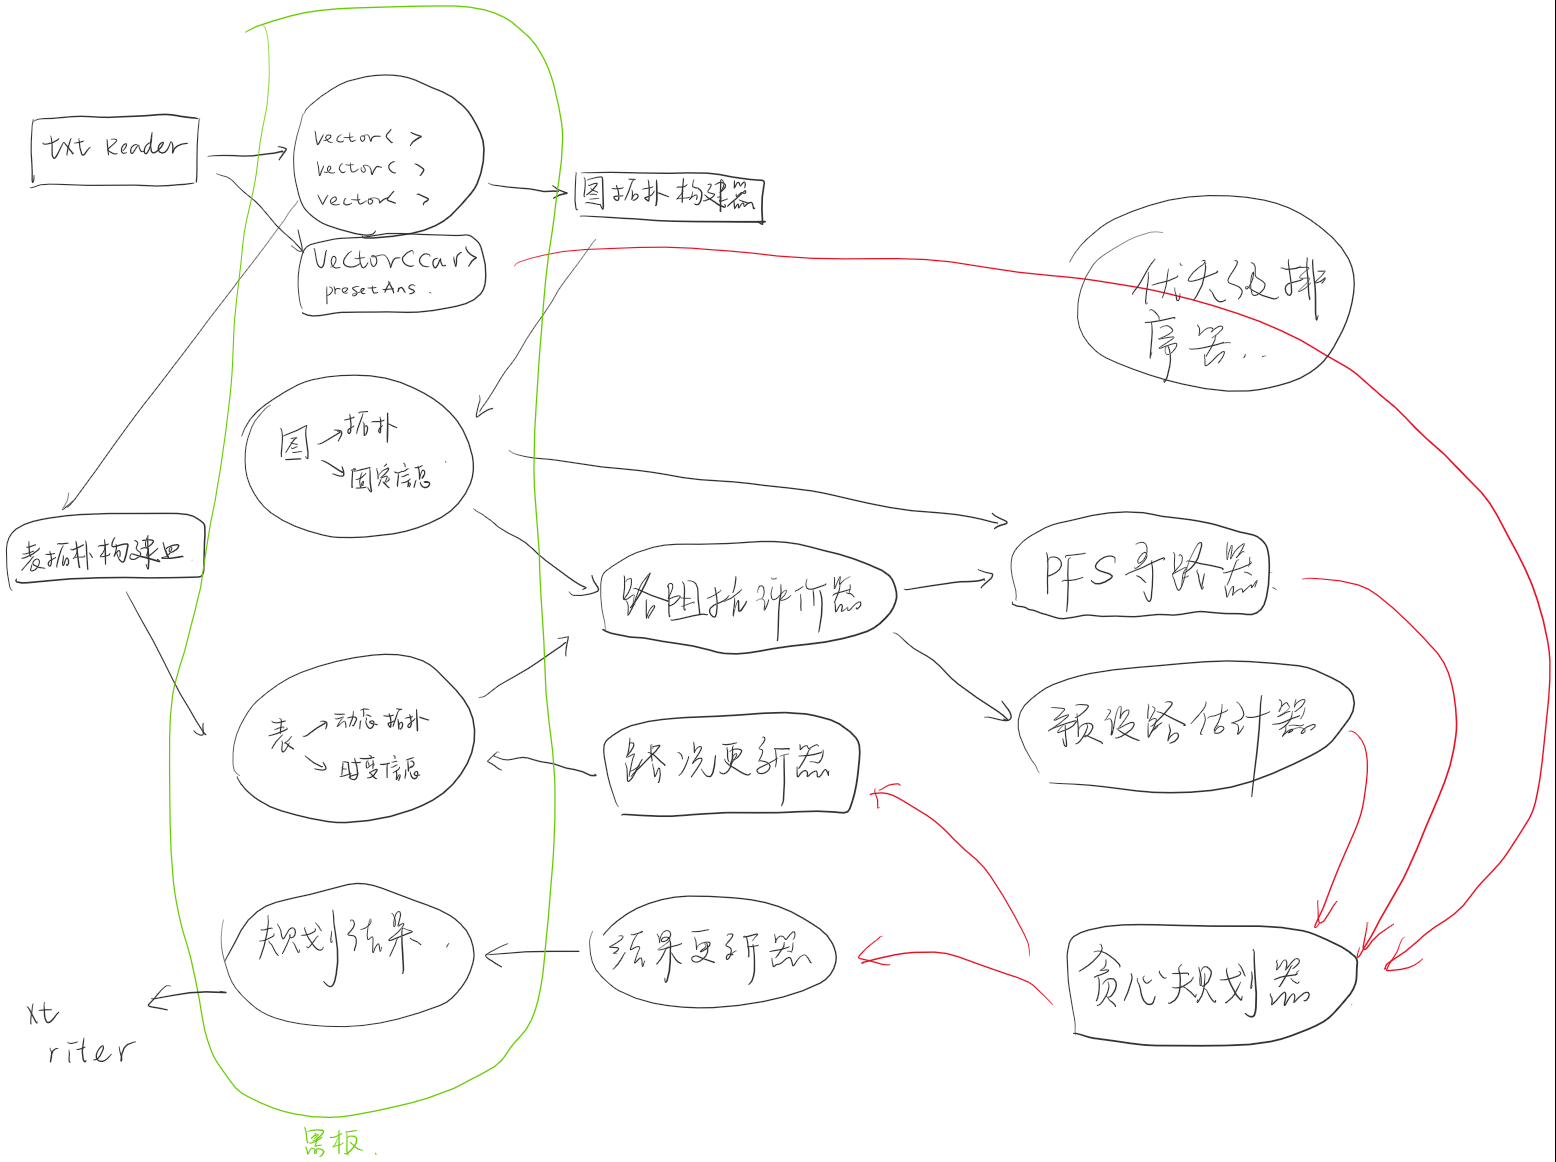 txt Reader
vector< >
vector< >
vector< >
vector<car>
presetAns.
图拓扑构建器
优先级排
序器..
图
拓扑
固定信息
表拓扑构建
路阻抗评价器
PFS寻路器
表
动态拓扑
时变信息
路况更新器
预设路估计器
规划结果.
结果更新器
贪心规划器
xt
riter
黑板.